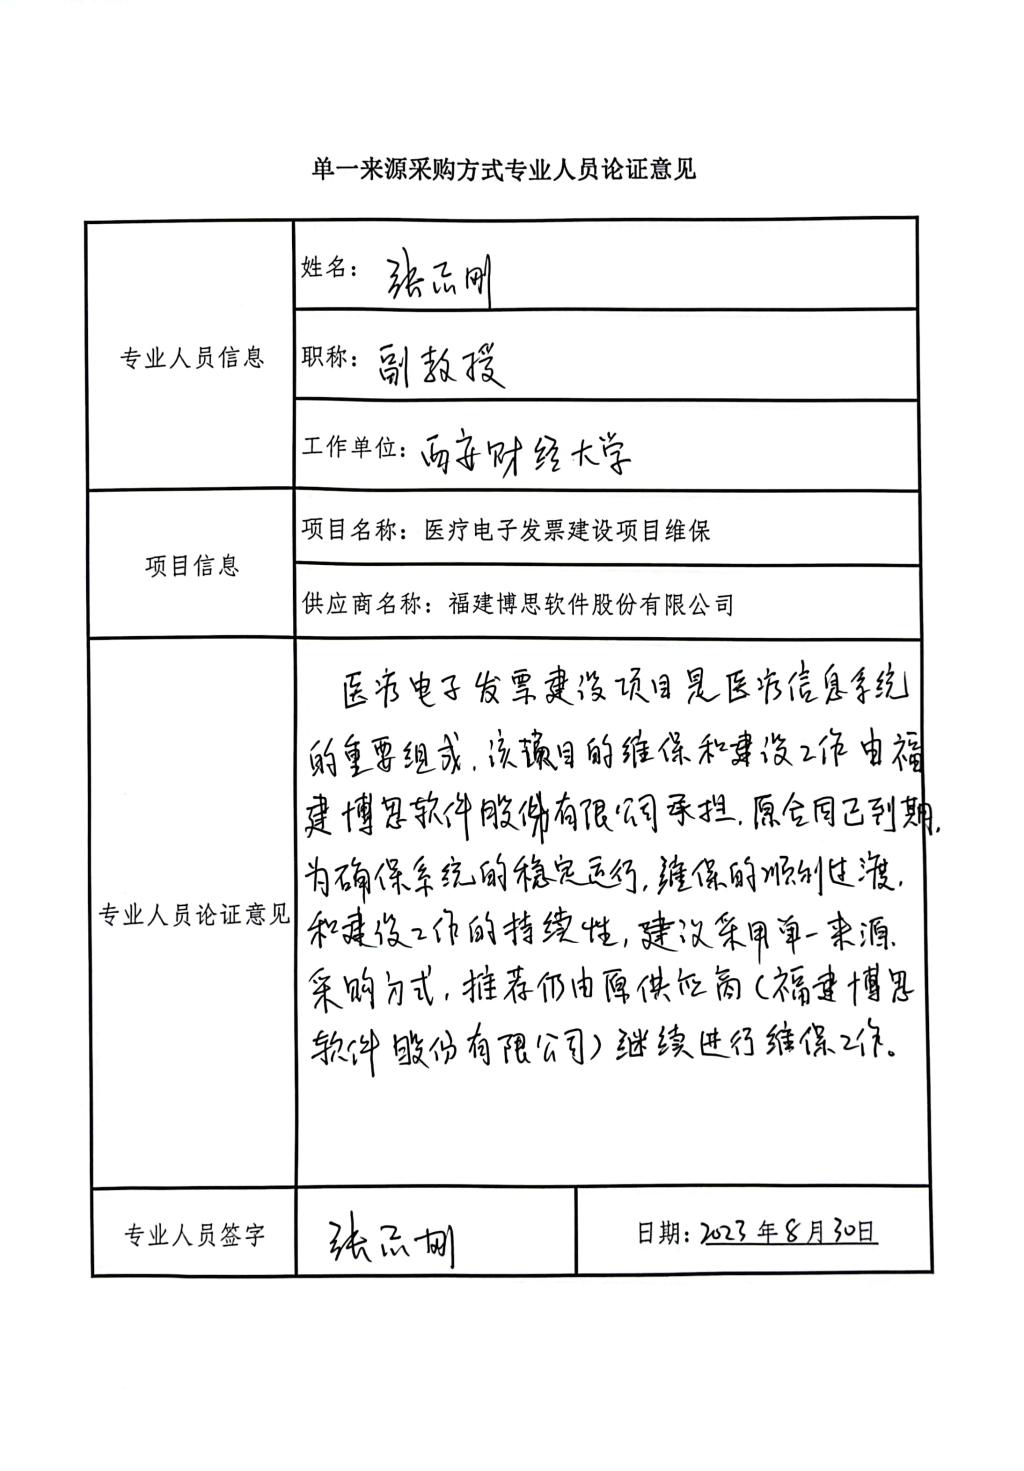 单一来源采购方式专业人员论证意见
专业人员信息
姓名：张志刚
职称：副教授
工作单位：西安财经大学
项目信息
项目名称：医疗电子发票建设项目维保
供应商名称：福建博思软件股份有限公司
专业人员论证意见
医疗电子发票建设项目是医疗信息系统
的重要组成，该项目的维保和建设工作由福
建博思软件股份有限公司承担，原合同已到期，
为确保系统的稳定运行，维保的顺利过渡，
和建设工作的持续性，建议采用单一来源
采购方式，推荐仍由原供应商（福建博思
软件股份有限公司）继续进行维保工作。
专业人员签字
张志刚
日期：2023年8月30日